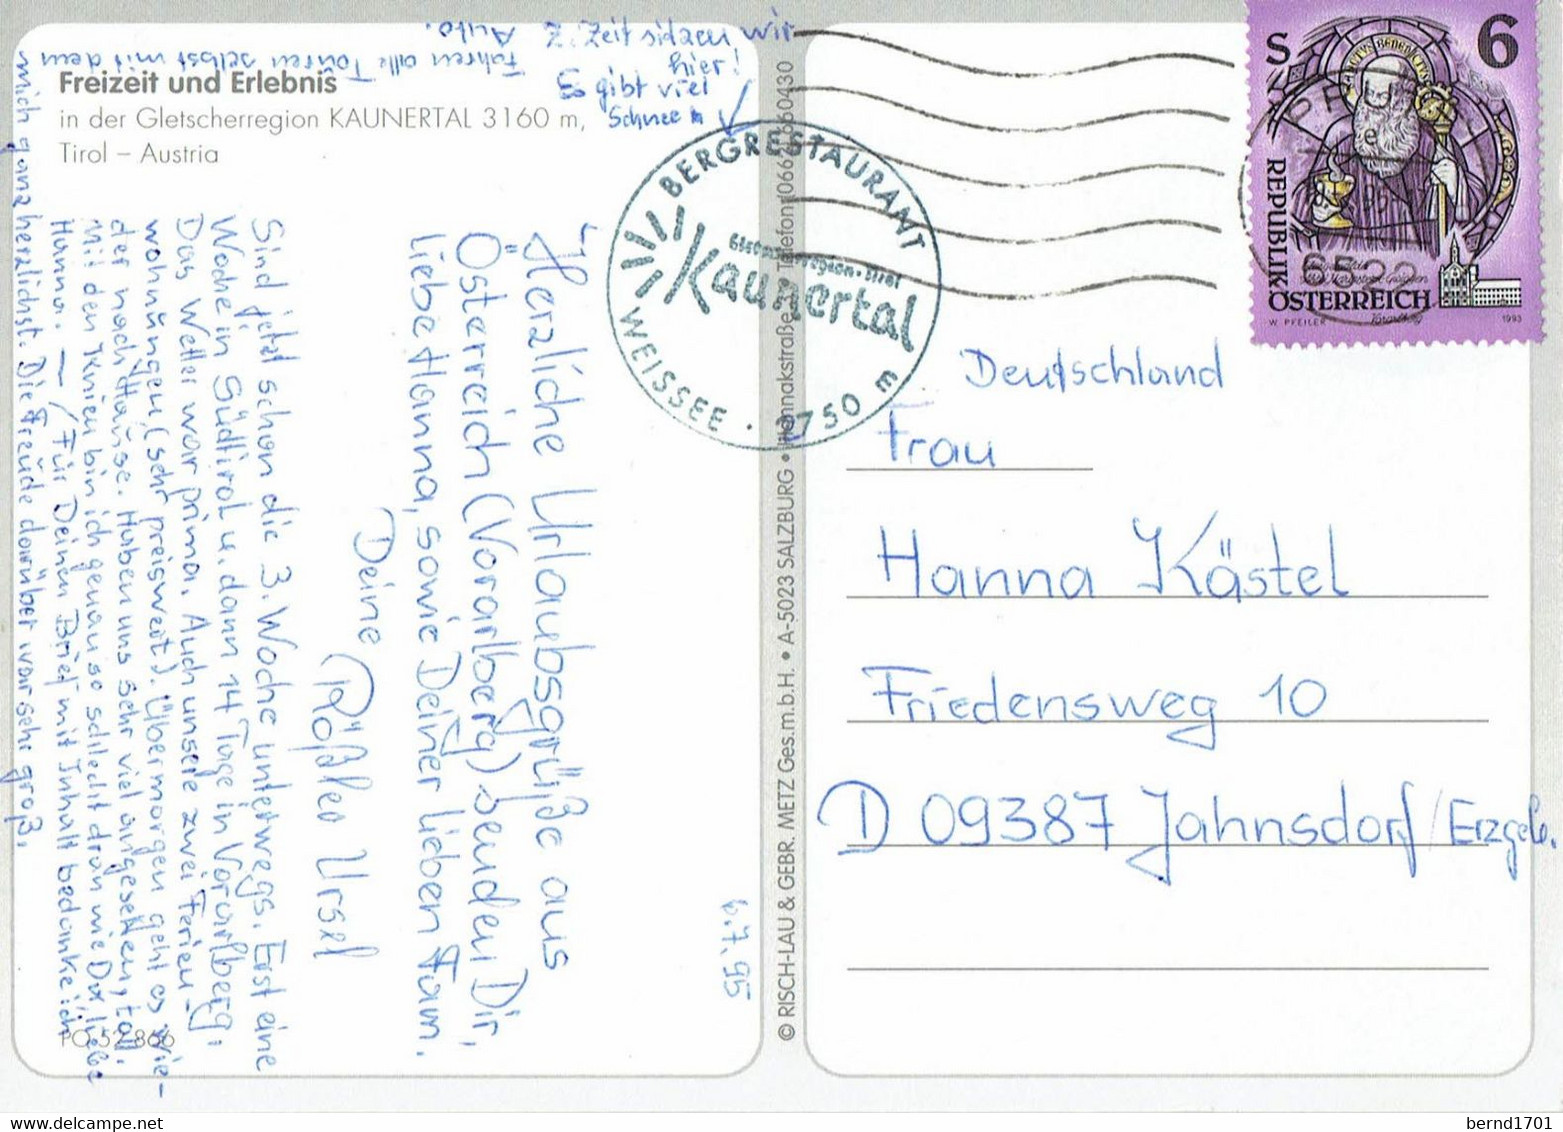 Freizeit und Erlebnis
in der Gletscherregion KAUNERTAL 3160 m,
Tirol – Austria
Herzliche Urlaubsgrüße aus
Österreich (Vorarlberg) senden Dir,
liebe Hanna, sowie Deiner lieben Fam.
Deine Rößler Ursel
Sind jetzt schon die 3. Woche unterwegs. Erst eine
Woche in Südtirol u. dann 14 Tage in Vorarlberg.
Das Wetter war prima. Auch unsere zwei Ferien-
wohnungen (sehr preiswert). Übermorgen geht es wie-
der nach Hause. Haben uns sehr viel angesehen, toll.
Mit den Knien bin ich genau so schlecht dran wie Du, liebe
Hanna. — / Für Deinen Brief mit Inhalt bedanke ich
mich ganz herzlichst. Die Freude darüber war sehr groß.
Fahren alle Touren selbst mit dem
Auto.
Z. Zeit sitzen wir
hier!
Es gibt viel
Schnee
6.7.95
BERGRESTAURANT
Gletscherregion · Tirol
Kaunertal
WEISSEE · 2750 m
PO 52 866
© RISCH-LAU & GEBR. METZ Ges.m.b.H. • A-5023 SALZBURG •
6
S
REPUBLIK
ÖSTERREICH
W. PFEILER
1993
6522
Deutschland
Frau
Hanna Kästel
Friedensweg 10
D 09387 Jahnsdorf / Erzgeb.
bernd1701